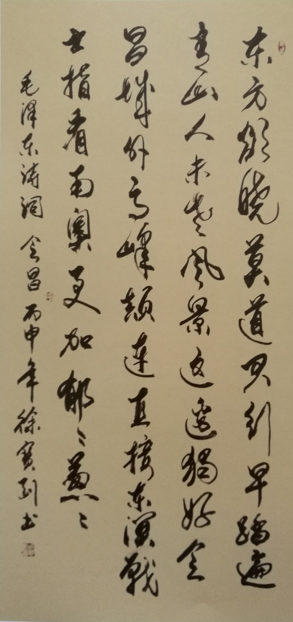 东方欲晓莫道君行早踏遍
青山人未老风景这边独好会
昌城外高峰颠连直接东溟战
士指看南粤更加郁〻葱〻
毛泽东诗词会昌丙申年徐宝刚书